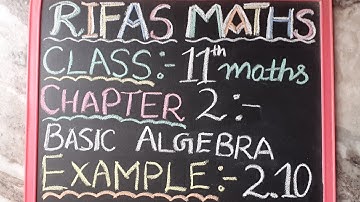 RIFAS MATHS
CLASS:- 11th maths
CHAPTER 2:-
BASIC ALGEBRA
EXAMPLE:- 2.10